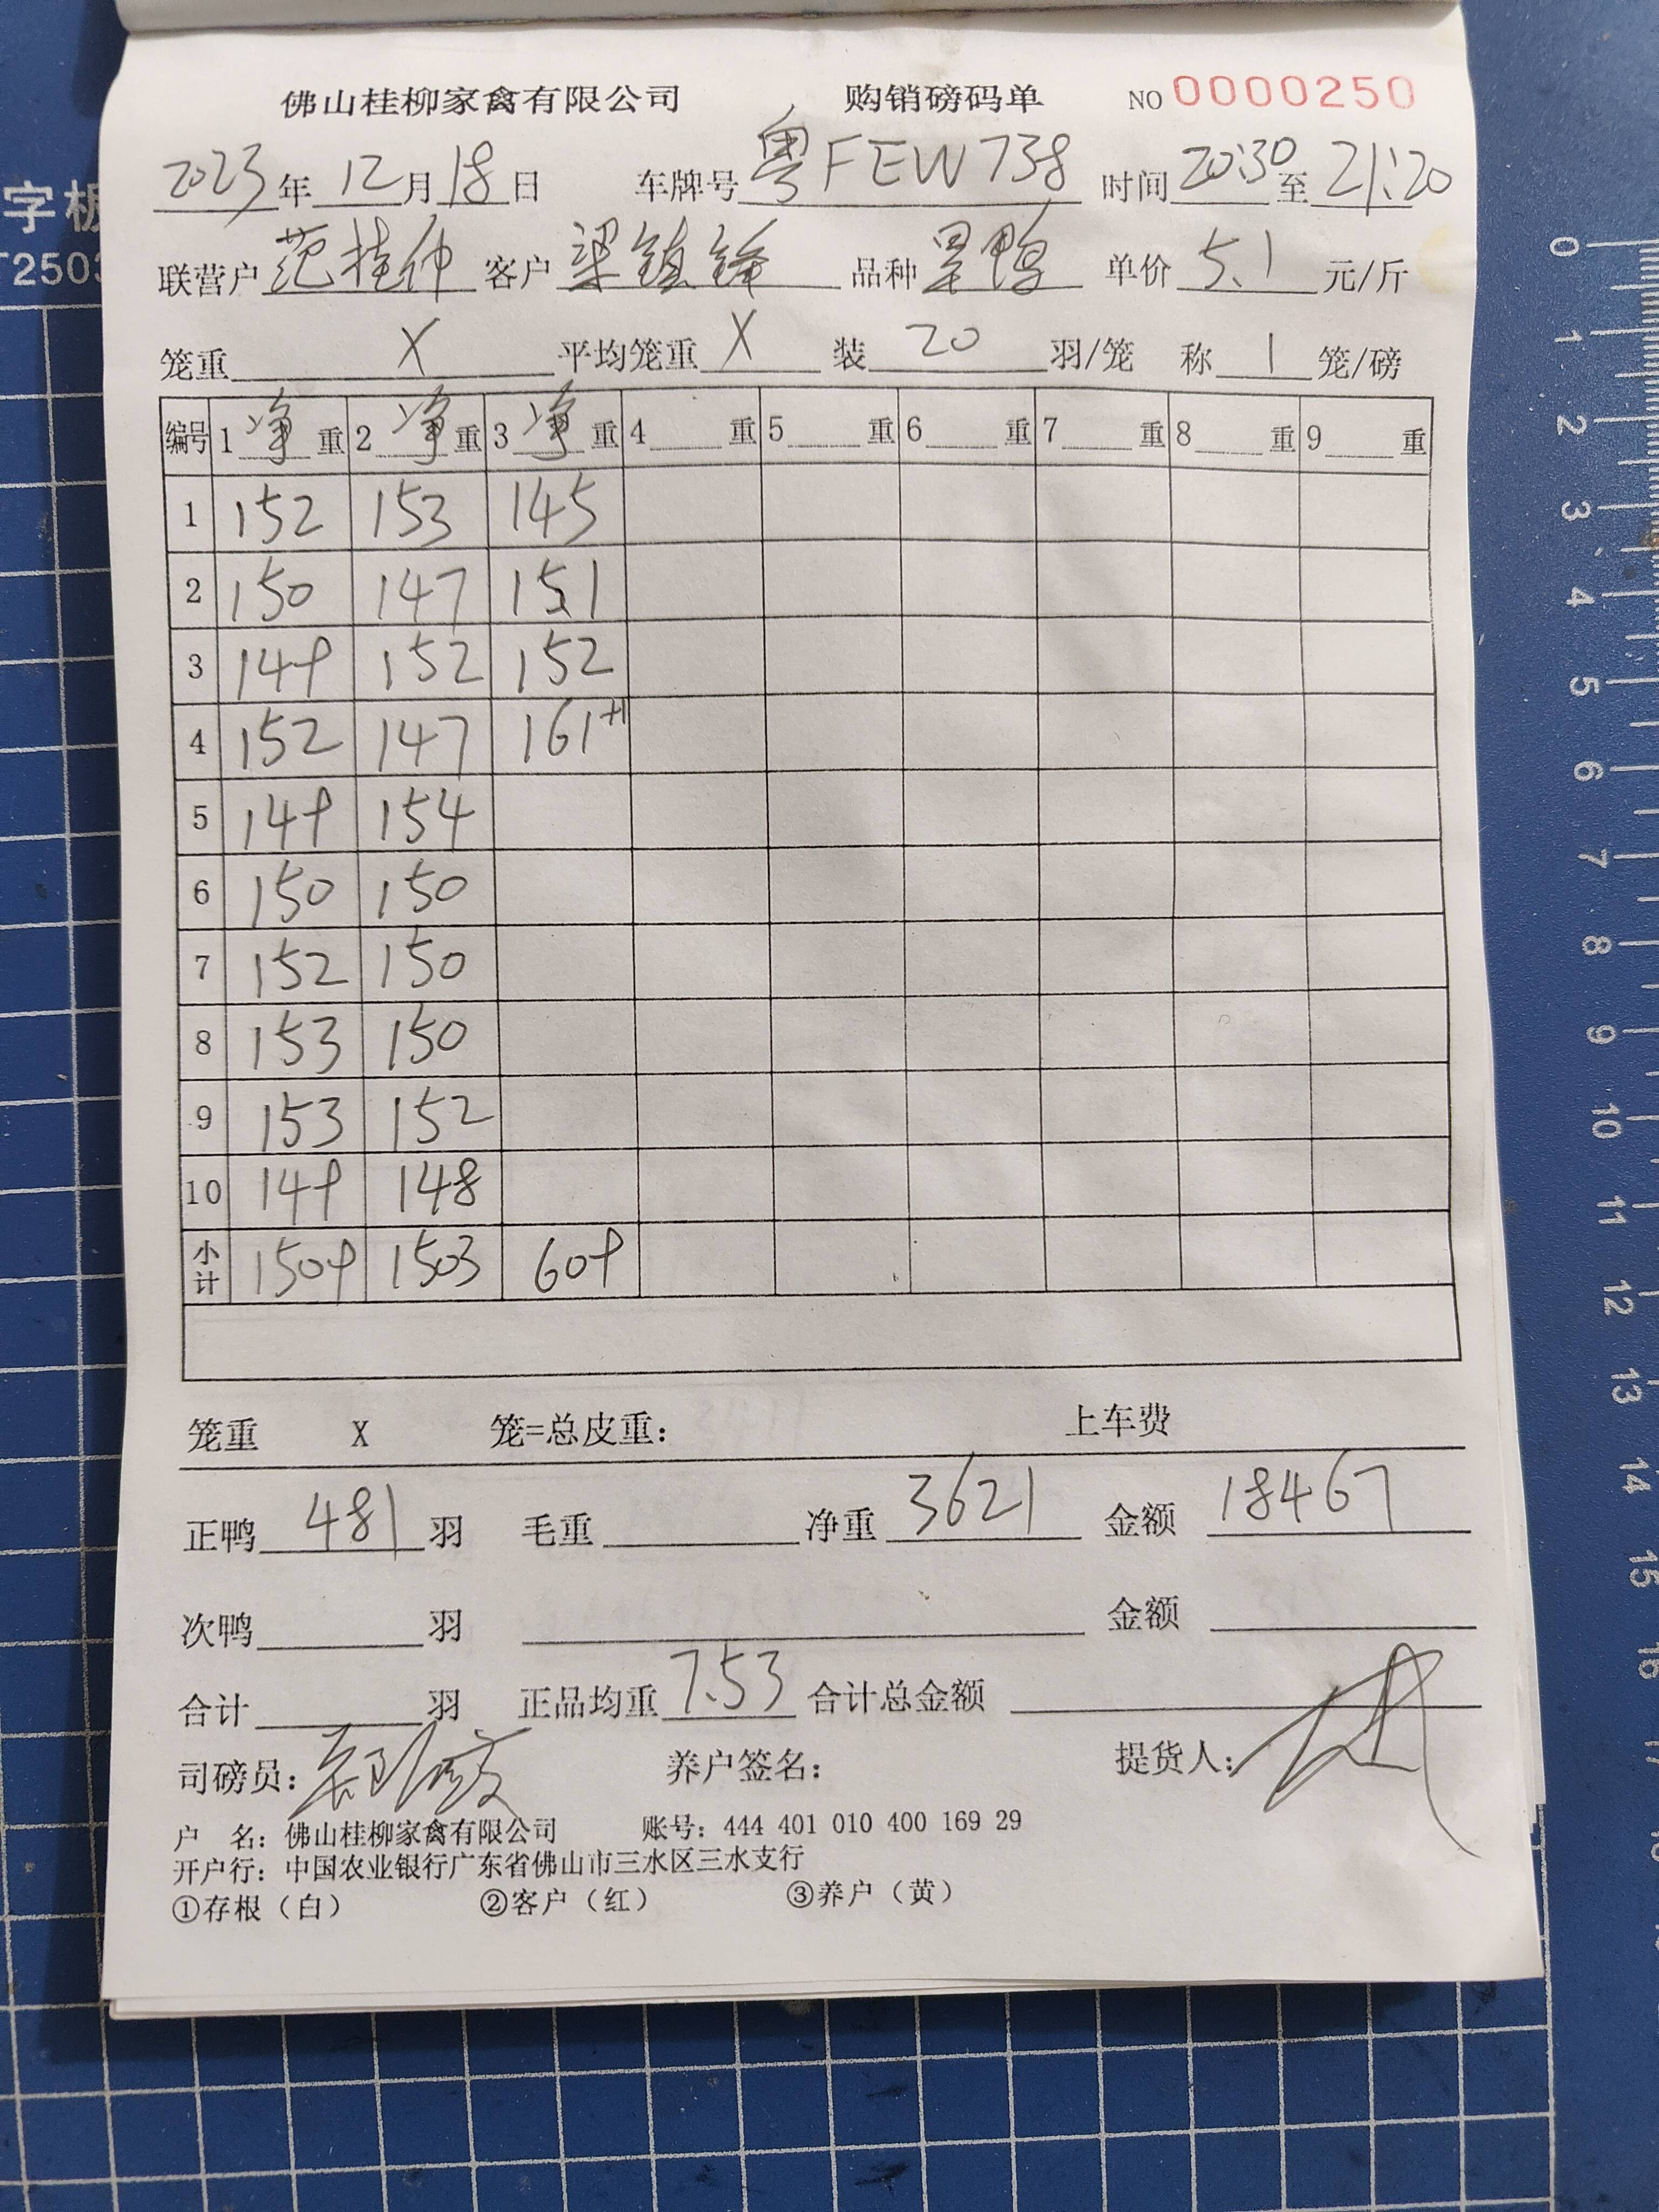 佛山桂柳家禽有限公司 购销磅码单 NO 0000250
2023年12月18日 车牌号 粤FEW738 时间 20:30 至 21:20
联营户 范桂仲 客户 梁镇锋 品种 旱鸭 单价 5.1 元/斤
笼重 X 平均笼重 X 装 20 羽/笼 称 1 笼/磅
编号 1 净 重 2 净 重 3 净 重 4 重 5 重 6 重 7 重 8 重 9 重
1 152 153 145
2 150 147 151
3 149 152 152
4 152 147 161+1
5 149 154
6 150 150
7 152 150
8 153 150
9 153 152
10 149 148
小计 1509 1503 609
笼重 X 笼=总皮重: 上车费
正鸭 481 羽 毛重 净重 3621 金额 18467
次鸭 羽 金额
合计 羽 正品均重 7.53 合计总金额
司磅员: 养户签名: 提货人:
户 名: 佛山桂柳家禽有限公司 账号: 444 401 010 400 169 29
开户行: 中国农业银行广东省佛山市三水区三水支行
①存根（白） ②客户（红） ③养户（黄）
字板
T2503
0
1
2
3
4
5
6
7
8
9
10
11
12
13
14
15
16
17